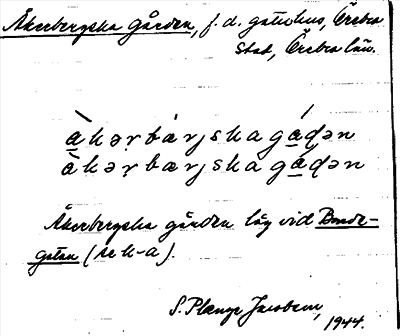 Åkerbergska gården, f.d. gästhus, Örebro
stad, Örebro län.
àkərbærjskagáḍən
àkəṛbærjskagáḍən
Åkerbergska gården låg vid Bonde-
gatan (se k-a).
S. Plange Jacobson,
1944.